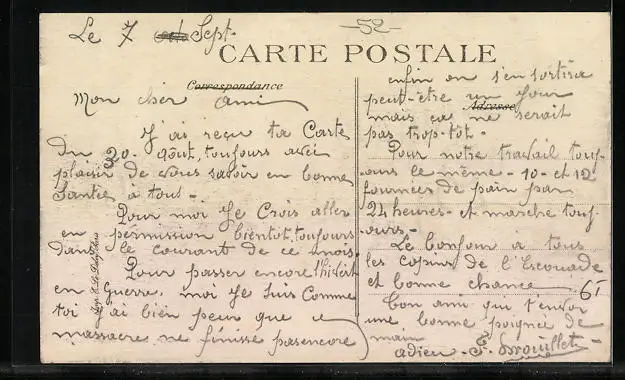 Le 7 Sept.
-52-
CARTE POSTALE
Correspondance
Mon cher ami
J'ai reçu ta Carte
du 30. août, toujours avec
plaisir de vous savoir en bonne
Santée à tous-
Pour moi Je Crois aller
en permission bientôt, toujours
dans le courant de ce mois.
Pour passer encore l'hivert
en Guerre, moi Je Suis Comme
toi j'ai bien peur que ce
massacre ne finisse pas encore
enfin on s'en sortira
peut-être un Jour
Adresse
mais ça ne serait
pas trop-tôt-
Pour notre travail touj-
ours le même- 10- et 12
fournées de pain par
24 heures- et marche touj-
-ours-
Le bonjour a tous
les copins de l'Escouade
et bonne chance. 61
Ton ami qui t'envoi
une bonne poignée de
main
adieu- F.